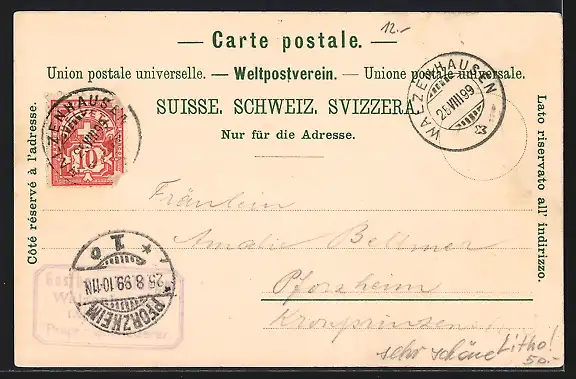 12.-
— Carte postale. —
Union postale universelle. — Weltpostverein. — Unione postale universale.
SUISSE. SCHWEIZ. SVIZZERA.
Nur für die Adresse.
Côté réservé à l'adresse.
Lato riservato all' indirizzo.
WALZENHAUSEN
25.VIII.99
WALZENHAUSEN
10
Fräulein
Amalie Bellmer
Pforzheim
PFORZHEIM
26.8.99.10-11N.
sehr schöne Litho!
50.-